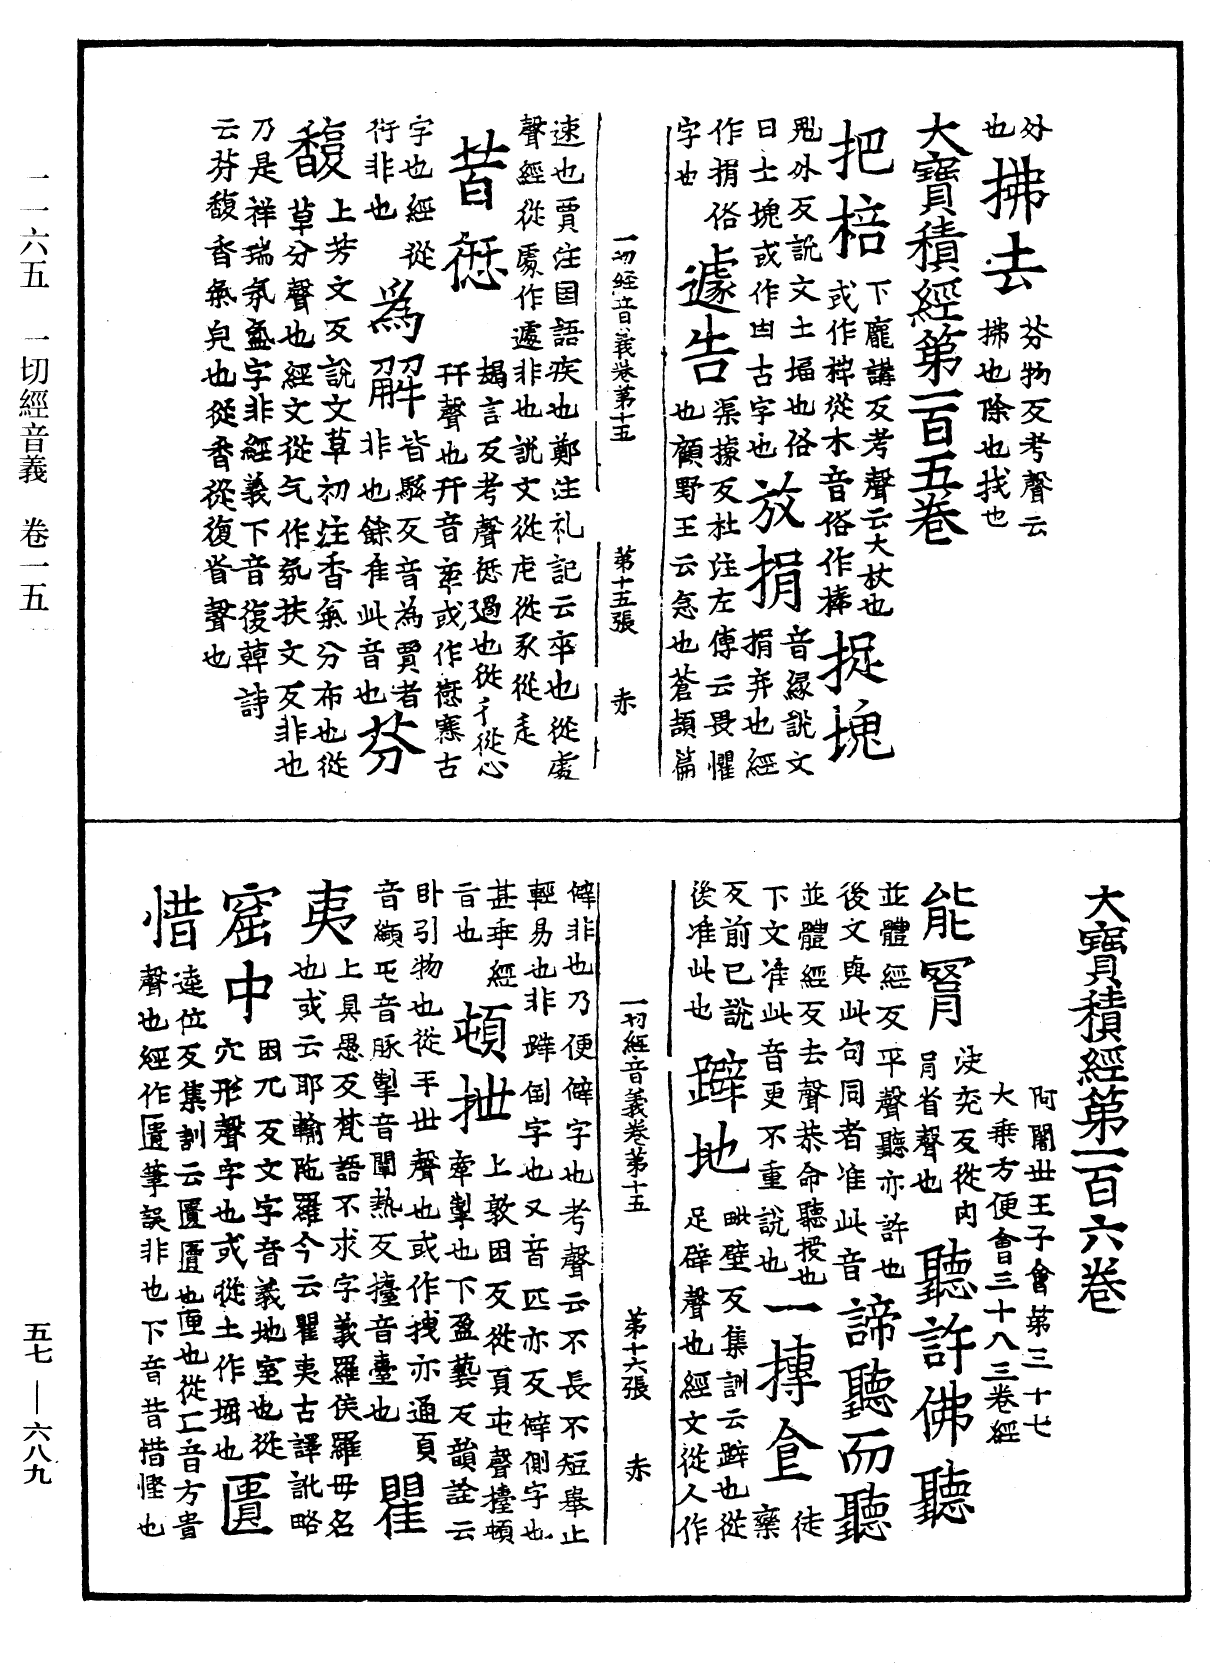 外
也
拂去
芬物反考聲云
拂也除也找也
大寶積經第一百五卷
把棓
下龐講反考聲云大杖也
或作桙從木音俗作棒
捉塊
鬼外反說文土堛也俗
曰土塊或作凷古字也
放捐
音緣說文
捐弃也經
作捐俗
字也
遽告
渠據反杜注左傳云畏懼
也顧野王云急也蒼頡篇
一切經音義卷第十五 第十五張 赤
速也賈注国語疾也鄭注礼記云卒也從處
聲經從處作遽非也說文從虍從豕從辵
昔愆
朅言反考聲愆過也從彳從心
幵聲也幵音牽或作𠎝𡫸古
字也經從
衍非也
為解
皆駭反音為賈者
非也餘准此音也
芬
馥
上芳文反說文草初注香氣分布也從
草分聲也經文從气作氛扶文反非也
乃是祥瑞氛氳字非經義下音復韓詩
云芬馥香氣皃也從香從復省聲也
大寶積經第一百六卷
阿闍世王子會第三十七
大乘方便會三十八三卷經
能冑
滎兖反從肉
肙省聲也
聽許佛聽
並體經反平聲聽亦許也
後文與此句同者准此音
諦聽而聽
並體經反去聲恭命聽授也
下文准此音更不重說也
一摶食
徒
欒
反前已說
後准此也
躃地
毗壁反集訓云躃也從
足辟聲也經文從人作
一切經音義卷第十五 第十六張 赤
僻非也乃便僻字也考聲云不長不短舉止
輕易也非躃倒字也又音匹亦反僻側字也
甚乖經
音也
頓抴
上敦困反從頁屯聲擡頓
牽掣也下盈藝反韻詮云
卧引物也從手世聲也或作拽亦通頁
音纈屯音豚掣音闡熱反擡音臺也
瞿
夷
上具愚反梵語不求字義羅侯羅母名
也或云耶輸陁羅今云瞿夷古譯訛略
窟中
困兀反文字音義地室也從
穴形聲字也或從土作堀也
匱
惜
逵位反集訓云匱匵也匣也從匚音方貴
聲也經作匱筆誤非也下音昔惜慳也
一一六五 一切經音義 卷一五
五七—六八九